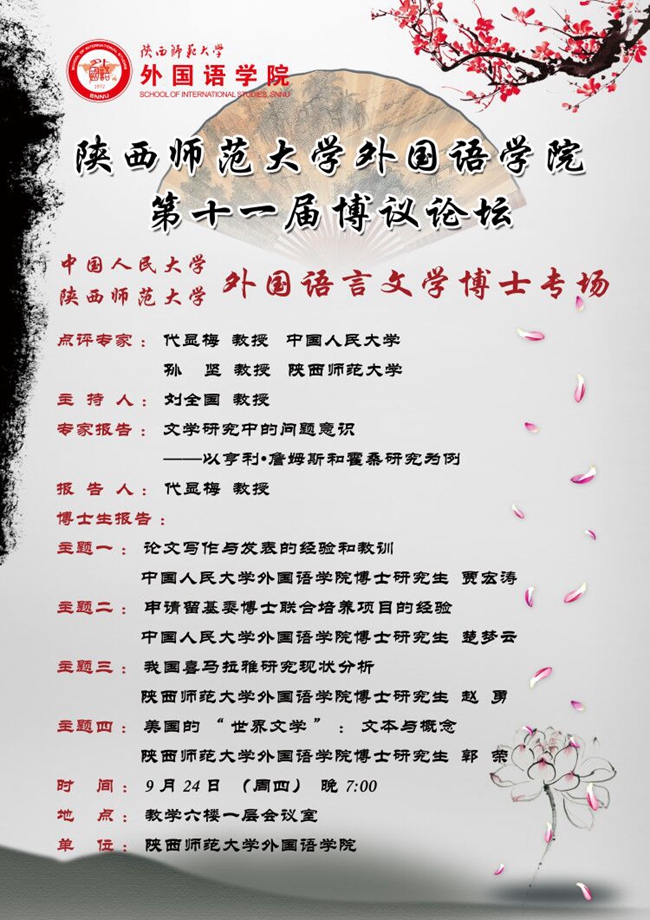 陕西师范大学
外国语学院
SCHOOL OF INTERNATIONAL STUDIES, SNNU
陕西师范大学外国语学院
第十一届博议论坛
中国人民大学
陕西师范大学
外国语言文学博士专场
点评专家： 代显梅 教授 中国人民大学
孙 坚 教授 陕西师范大学
主 持 人： 刘全国 教授
专家报告： 文学研究中的问题意识
——以亨利•詹姆斯和霍桑研究为例
报 告 人： 代显梅 教授
博士生报告：
主题一： 论文写作与发表的经验和教训
中国人民大学外国语学院博士研究生 贾宏涛
主题二： 申请留基委博士联合培养项目的经验
中国人民大学外国语学院博士研究生 楚梦云
主题三： 我国喜马拉雅研究现状分析
陕西师范大学外国语学院博士研究生 赵 勇
主题四： 美国的 “世界文学”： 文本与概念
陕西师范大学外国语学院博士研究生 郭 荣
时 间： 9月24日 （周四） 晚 7:00
地 点： 教学六楼一层会议室
单 位： 陕西师范大学外国语学院